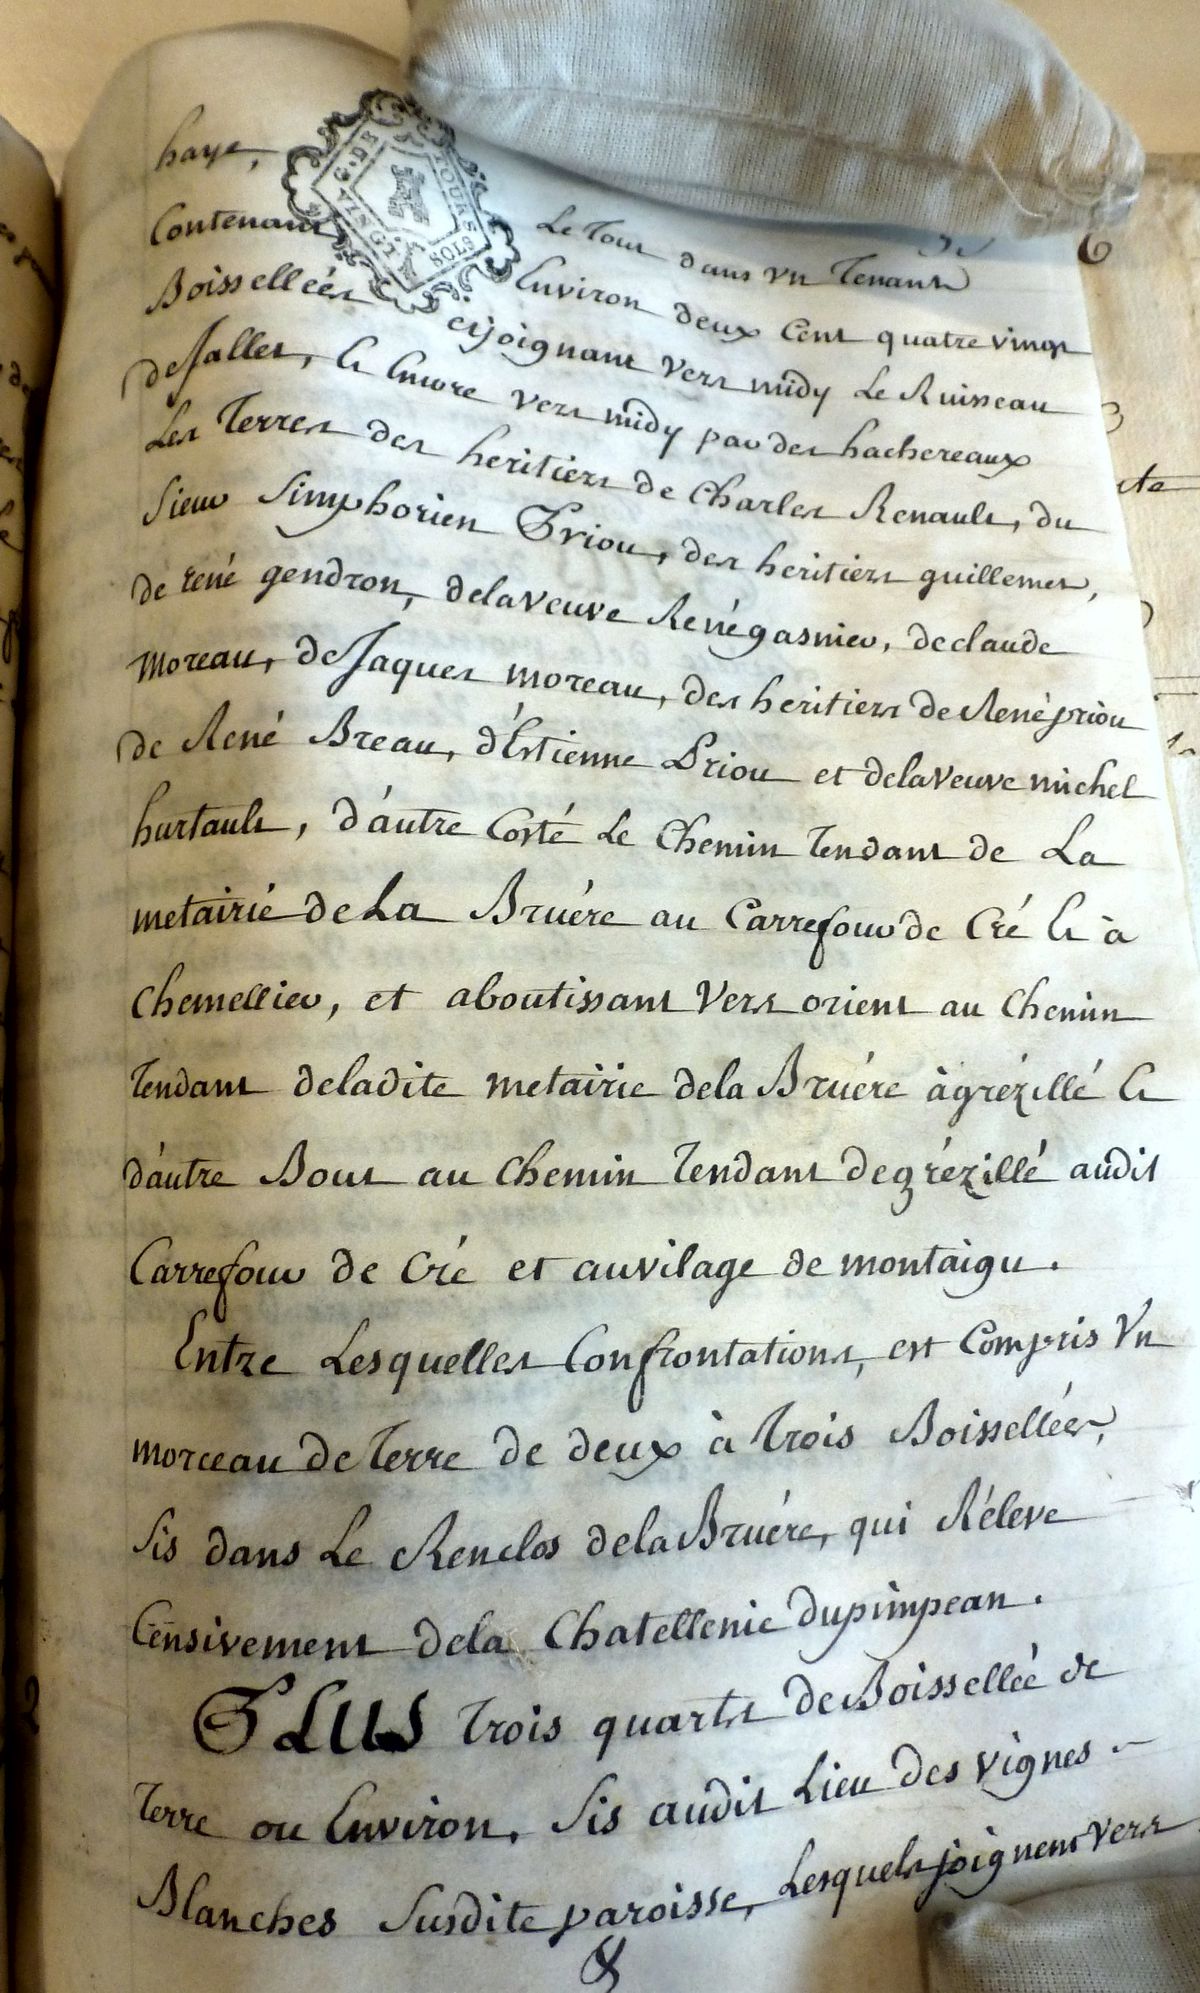 haye, Le Tout dans vn Tenant
Contenant Environ deux Cent quatre vingt
Boissellées et joignant vers midy Le Ruisseau
de Jalles, et Encore vers midy par des hachereaux
Les Terres des heritiers de Charles Renault, du
Sieur Simphorien Priou, des heritiers guillemet,
de rené gendron, delaveuve René gasnier, declaude
moreau, de Jaques moreau, des heritiers de René priou
de René Breau, d'Estienne Priou et delaveuve michel
hurtault, d'autre Costé Le Chemin Tendant de La
metairié de La Bruére au Carrefour de Cré et à
Chemellier, et aboutissant Vers orient au Chemin
Tendant deladite metairie dela Bruére àgrézillé et
d'autre Bout au Chemin Tendant degrézillé audit
Carrefour de Cré et auvilage de montaigu.
Entre Lesquelles Confrontations, est Compris Vn
morceau de Terre de deux à Trois Boissellées,
Sis dans Le Renclos dela Bruére, qui Réleve
Censivement dela Chatellenie dupimpean.
PLUS Trois quarts de Boissellée de
Terre ou Environ, Sis audit Lieu des vignes
Blanches Susdite paroisse, Lesquels joignent vers
G. DE TOURS
SOLS